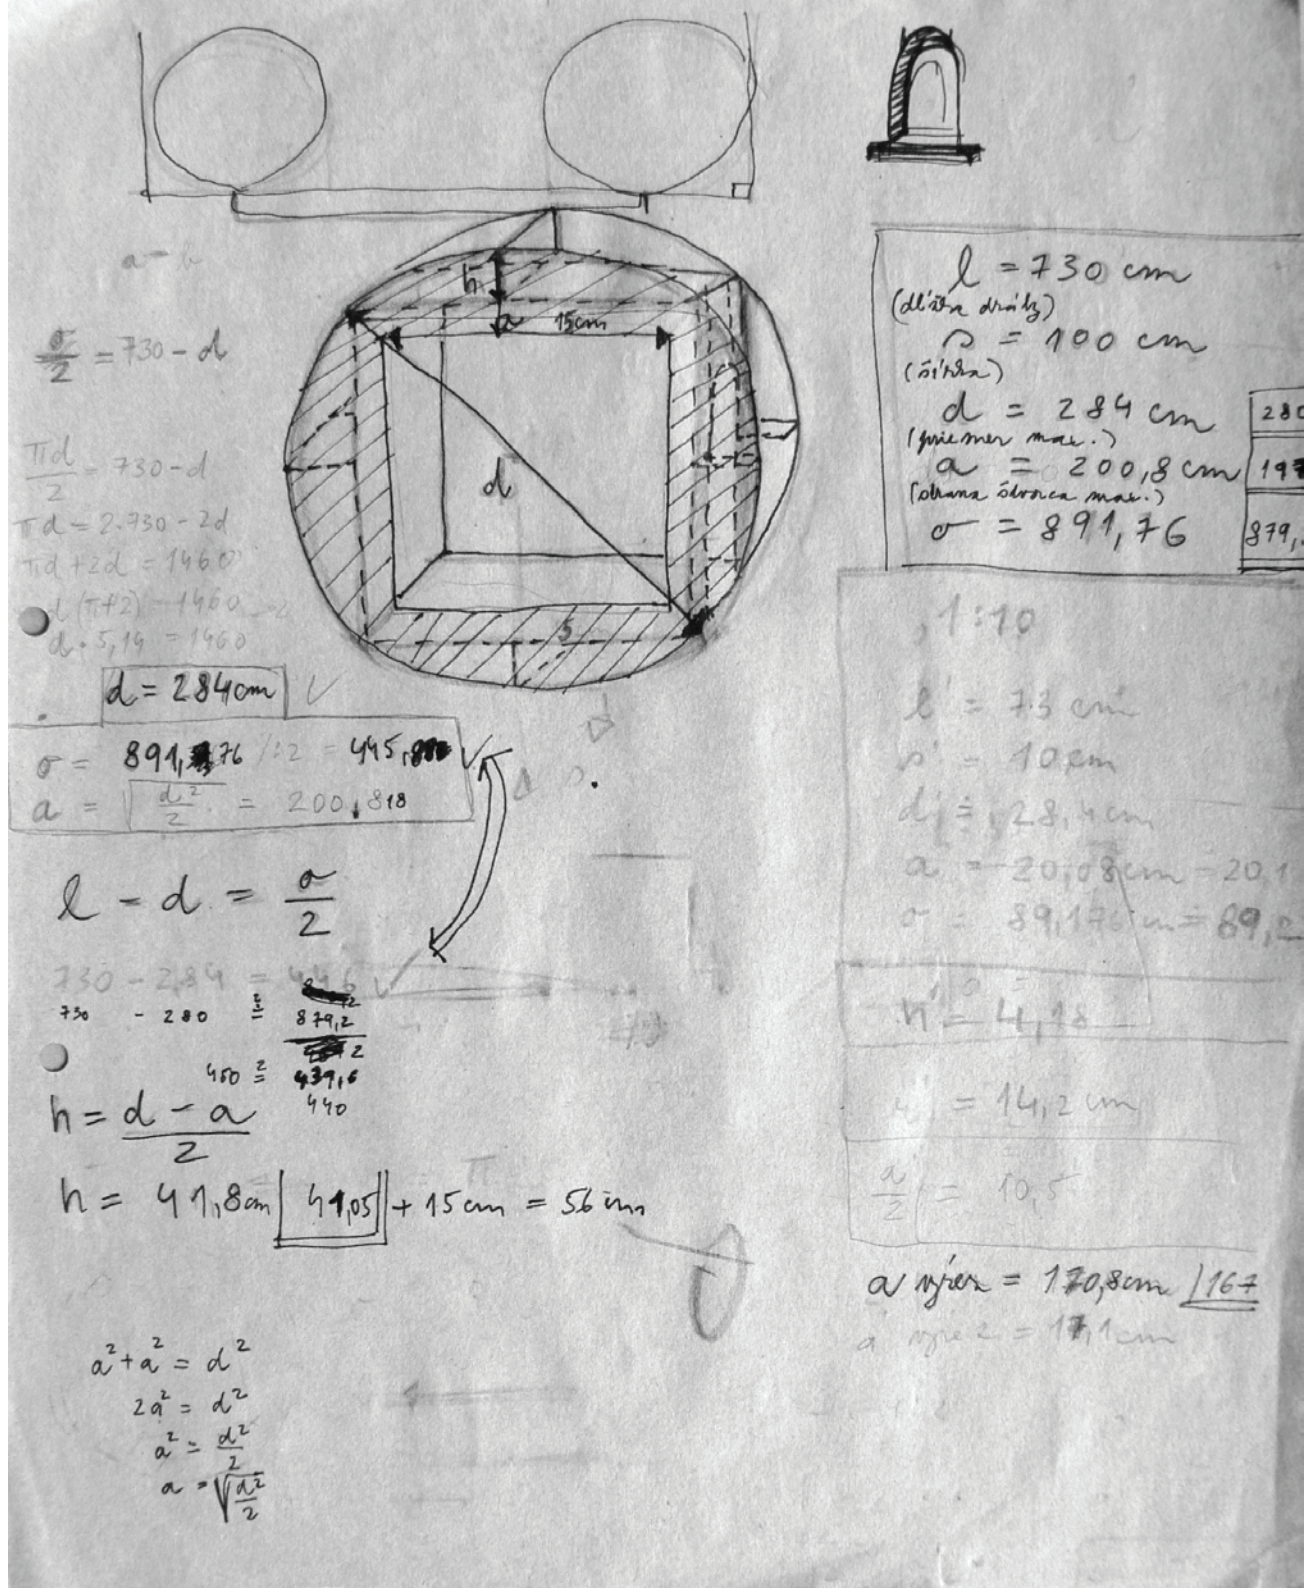 h
a 15cm
d
s
a = b
σ/2 = 730 - d
πd/2 = 730 - d
πd = 2.730 - 2d
πd + 2d = 1460
d (π+2) = 1460
d . 5,14 = 1460
d = 284cm √
σ = 891,76 /:2 = 445,
a = √(d²/2) = 200,818
l - d = σ/2
730 - 284 = 446 √
730 - 280 ≟ 879,2/2
450 ≟ 439,6
440
h = (d - a)/2
h = 41,8cm | 41,05 + 15cm = 56 cm
a² + a² = d²
2a² = d²
a² = d²/2
a = √(d²/2)
l = 730 cm
(dĺžka dráhy)
s = 100 cm
(šírka)
d = 284 cm
(priemer max.)
a = 200,8 cm
(strana štvorca max.)
σ = 891,76
280
197
879,
1:10
l' = 73 cm
s' = 10cm
d' = 28,4cm
a = 20,08cm = 20,1
σ = 89,176cm = 89,2
h' = 4,18
= 14,2 cm
a/2 = 10,5
a výrez = 170,8cm | 167
a' výrez = 17,1cm